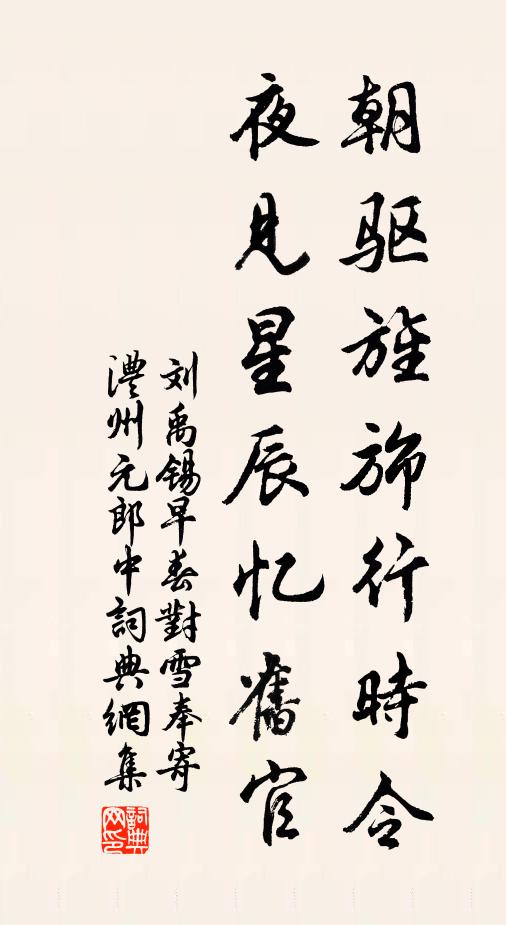 朝驱旌旆行時令
夜見星辰忆舊官
刘禹锡早春對雪奉寄
澧州元郎中詞典網集
詞典
网印